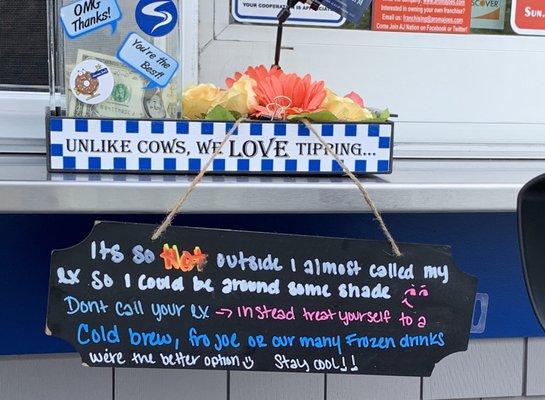 OMG
Thanks!
You're
the Best!
YOUR CONVENIENCE
Email us: franchising@aromajoes.com
Interested in owning your own franchise?
Come Join AJ Nation on Facebook or Twitter
DISCOVER
UNLIKE COWS, WE LOVE TIPPING...
Its so HOT outside I almost called my
EX So I could be around some shade
Dont call your EX → instead treat yourself to a
Cold brew, fro joe or our many Frozen drinks
We're the better option Stay cool!!